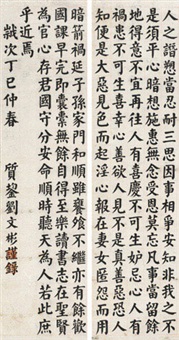 人之譖愬當忍耐三思因事相爭安知非我之不
是須平心暗想施惠無念受恩莫忘凡事當留餘
地得意不宜再往人有喜慶不可生妒忌心人有
禍患不可生喜幸心善欲人見不是真善惡恐人
知便是大惡見色而起淫心報在妻女匿怨而用
暗箭禍延子孫家門和順雖饔飧不繼亦有餘歡
國課早完即囊橐無餘自得至樂讀書志在聖賢
為官心存君國守分安命順時聽天為人若此庶
乎近焉
歲次丁巳仲春
質黎劉文彬謹錄